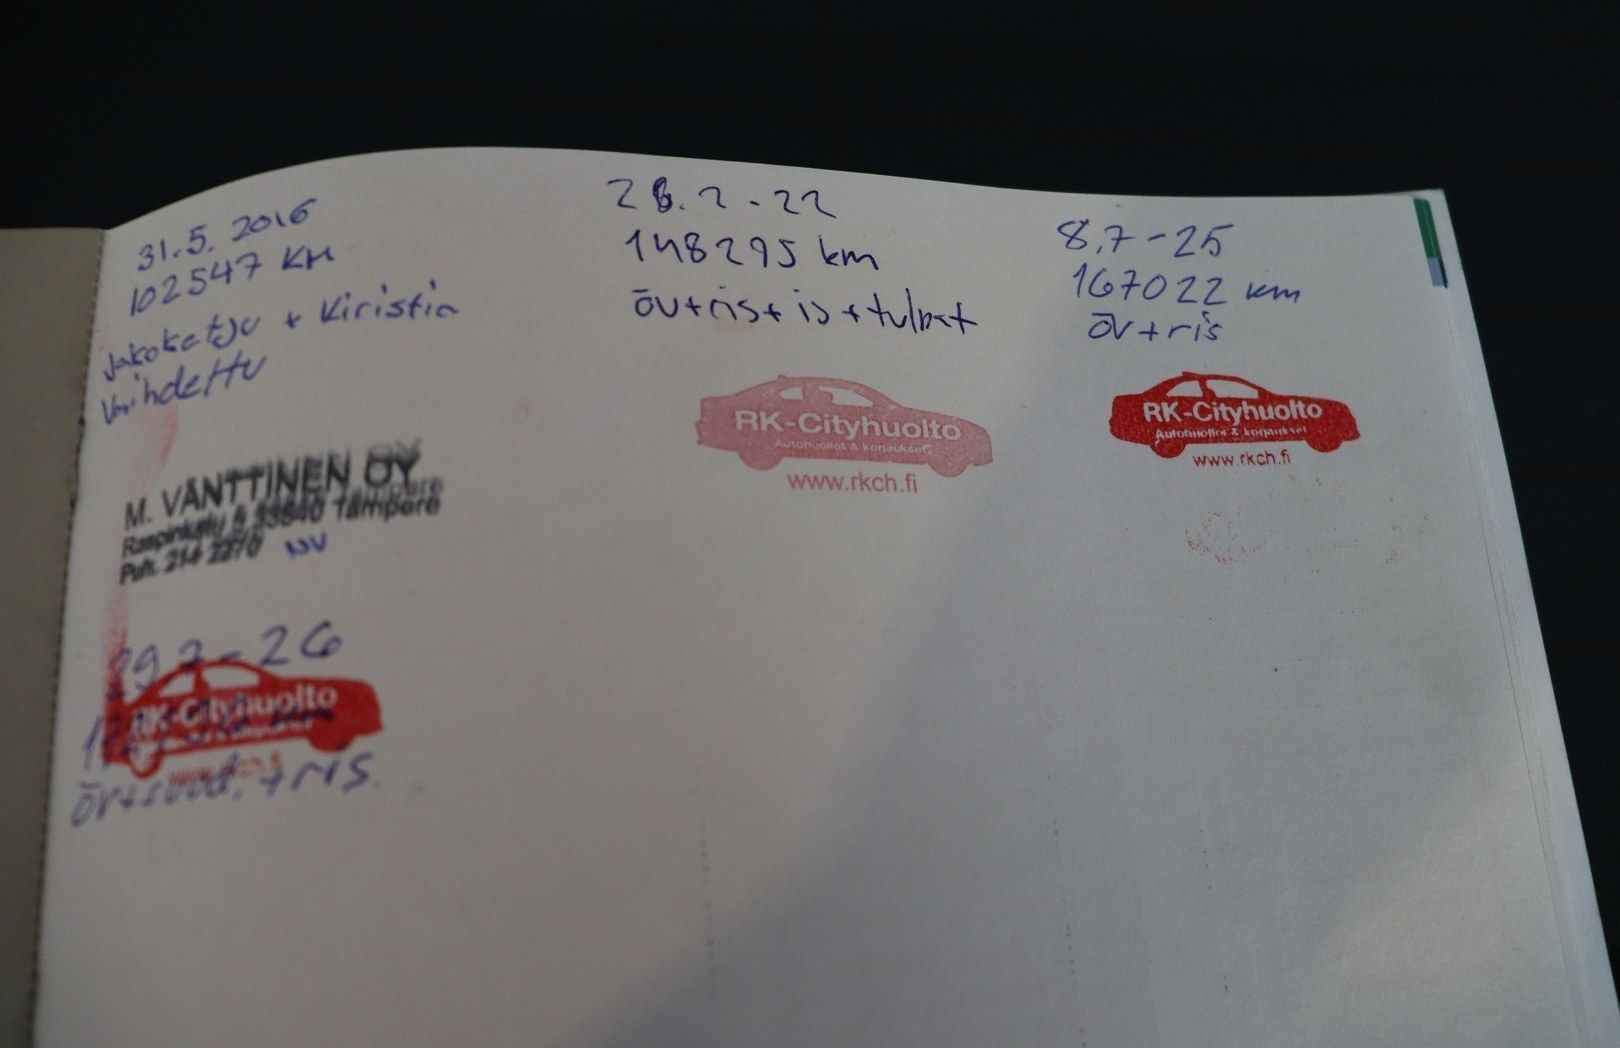 31.5. 2016
102547 KM
Jakoketju + Kiristin
Vaihdettu
M. VÄNTTINEN OY
33840 Tampere
Puh. 214 2270
NV
29.7-26
RK-Cityhuolto
www.rkch.fi
+ ris.
28.2-22
148295 km
öv+ris+is+tulpat
RK-Cityhuolto
Autohuollot & korjaukset
www.rkch.fi
8.7-25
167022 km
öv+ris
RK-Cityhuolto
Autohuollot & korjaukset
www.rkch.fi